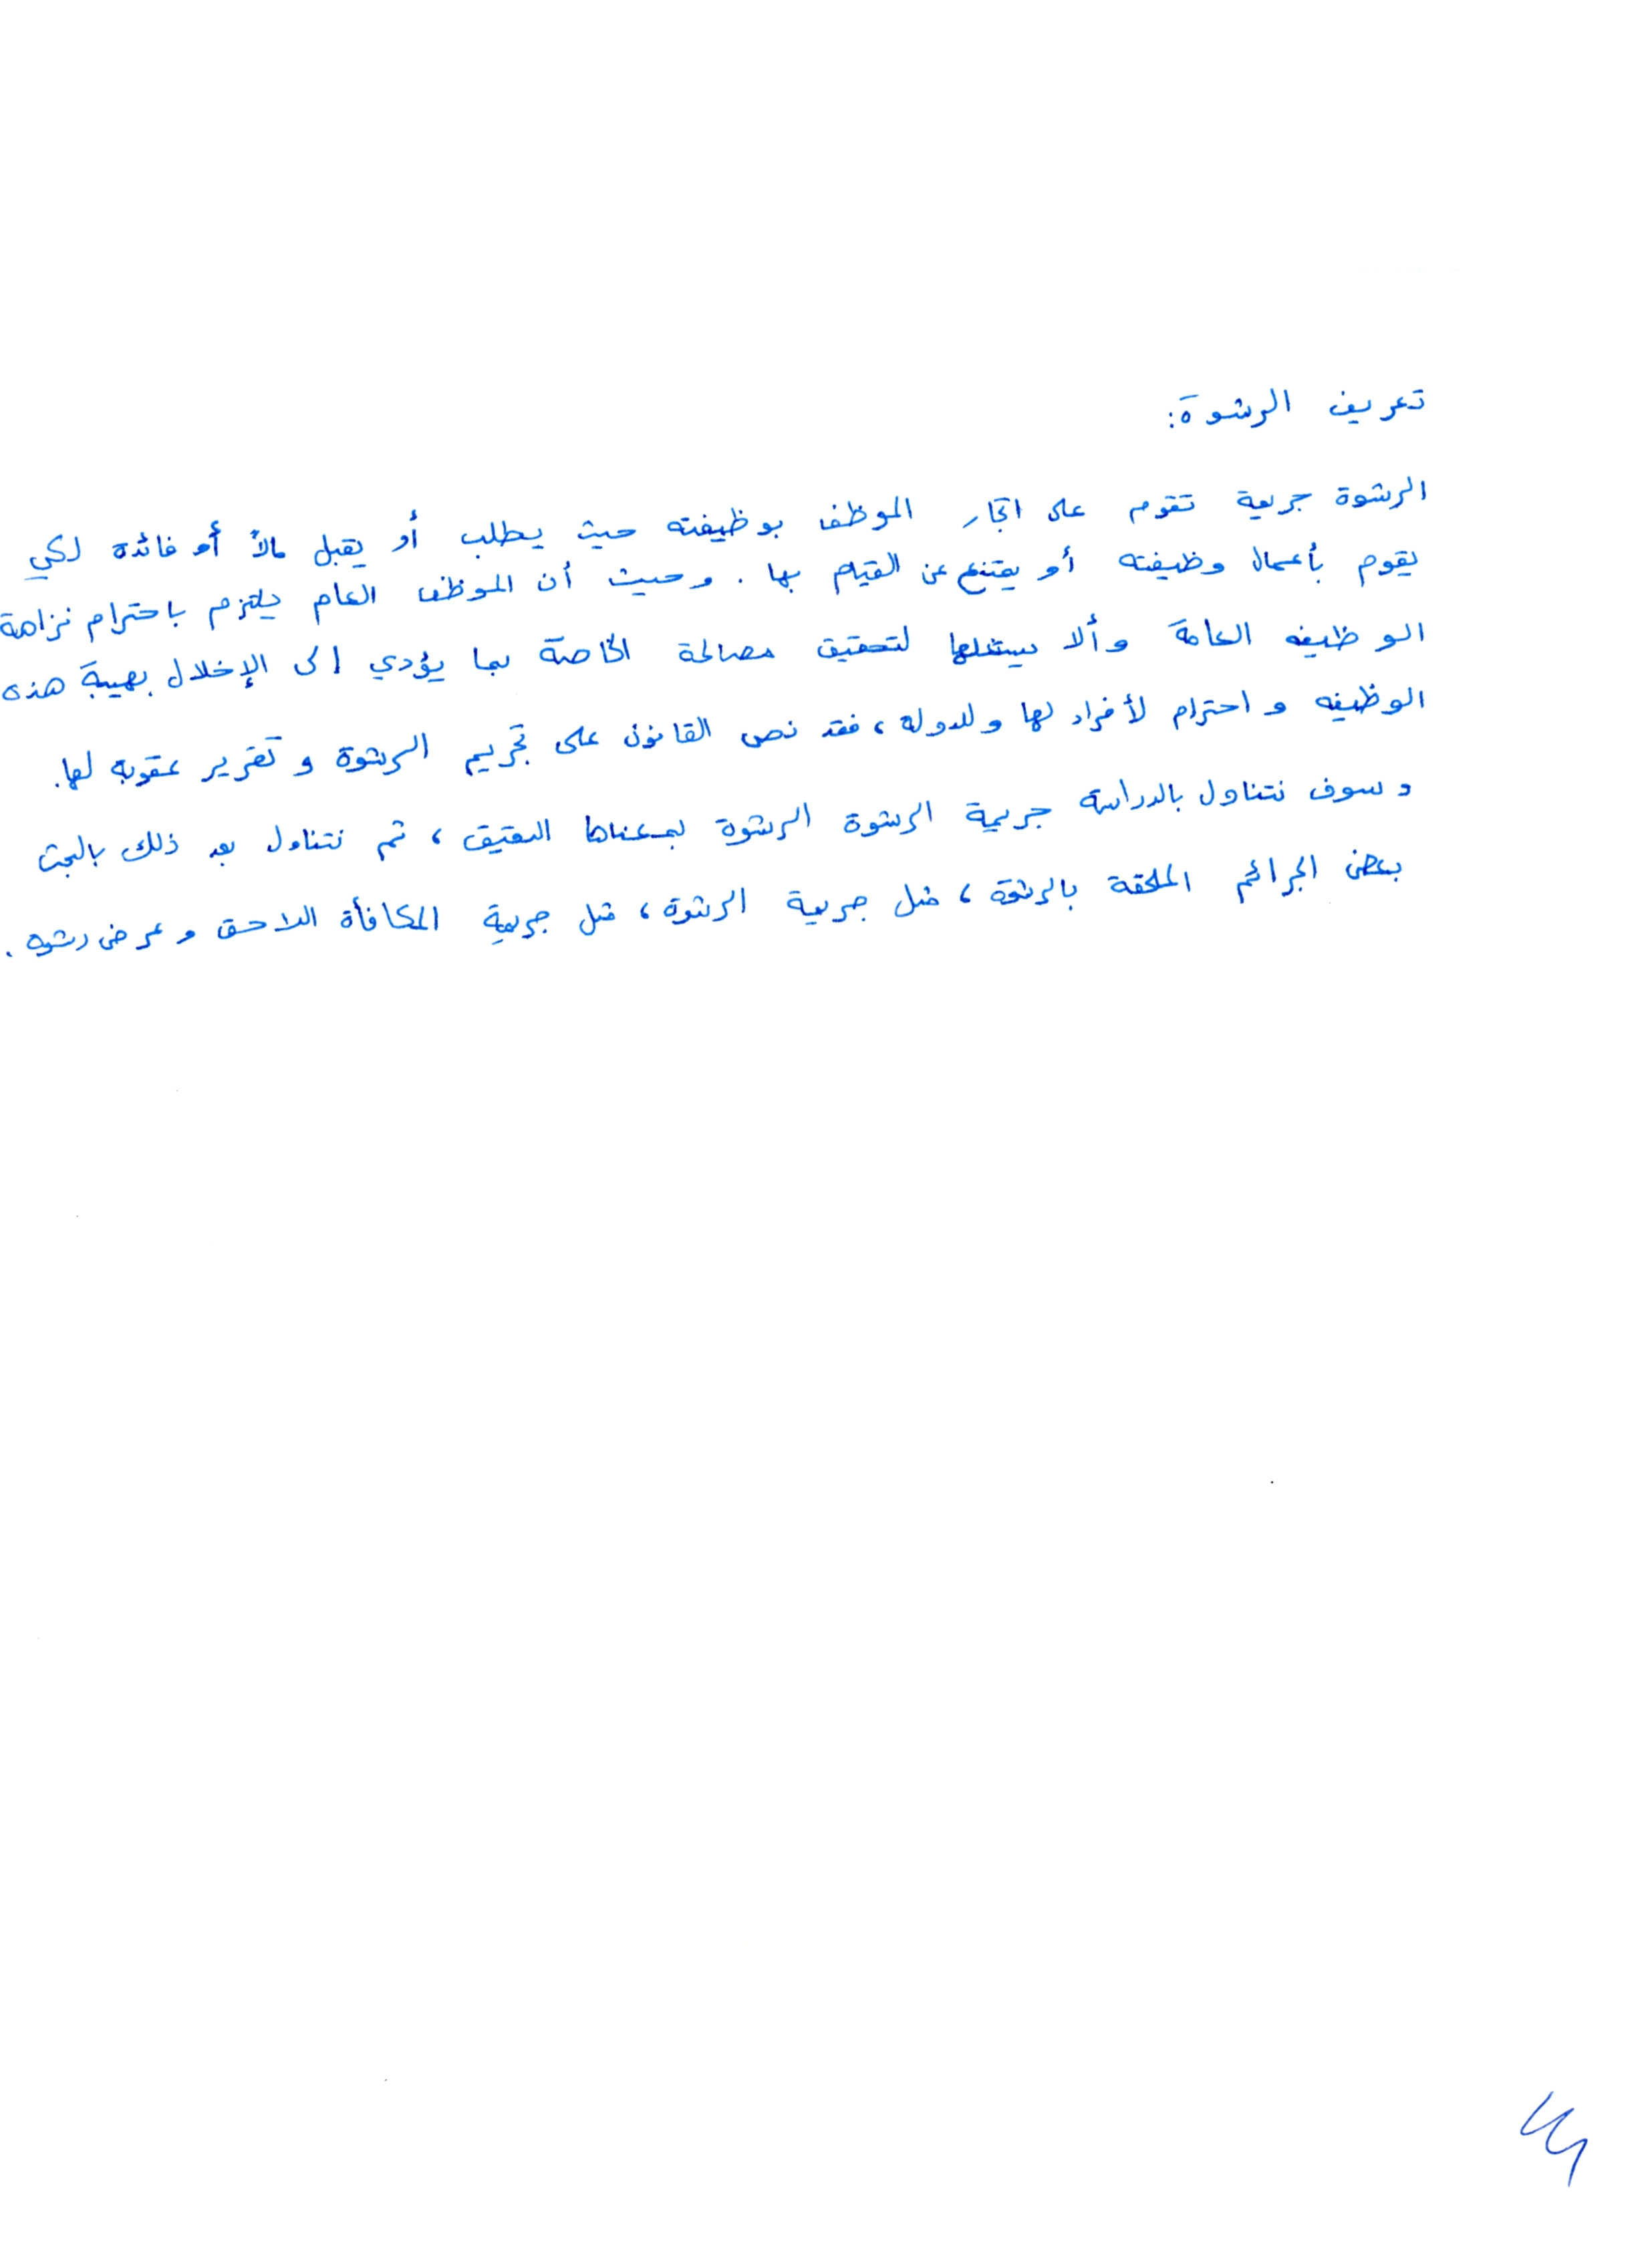 تعريف الرشوة:
الرشوة جريمة تقوم على اتجار الموظف بوظيفته حيث يطلب أو يقبل مالاً أو فائدة لكي
يقوم بأعمال وظيفته أو يمتنع عن القيام بها . وحيث أن الموظف العام يلتزم باحترام نزاهة
الوظيفه العامة وألا يستغلها لتحقيق مصالحة الخاصة بما يؤدي إلى الإخلال بهيبة هذه
الوظيفه و احترام لأفراد لها وللدوله ، فقد نص القانون على تجريم الرشوة و تقرير عقوبه لها.
وسوف نتناول بالدراسة جريمة الرشوة الرشوة بمعناها الدقيق ، ثم نتناول بعد ذلك بالبحث
بعض الجرائم الملحقة بالرشوة ، مثل جريمة الرشوة ، مثل جريمة المكافأة اللاحق و عرض رشوه .